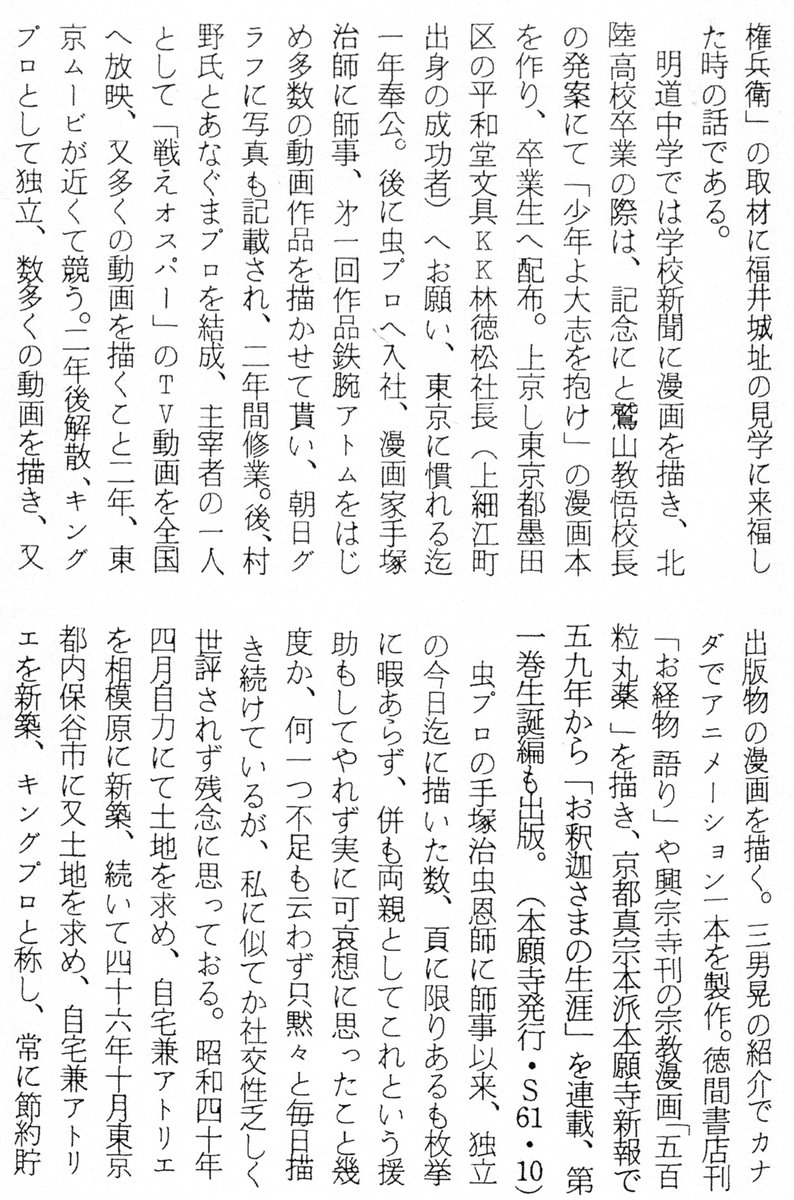 権兵衛」の取材に福井城址の見学に来福し
た時の話である。
明道中学では学校新聞に漫画を描き、北
陸高校卒業の際は、記念にと鷲山教悟校長
の発案にて「少年よ大志を抱け」の漫画本
を作り、卒業生へ配布。上京し東京都墨田
区の平和堂文具KK林徳松社長(上細江町
出身の成功者)へお願い、東京に慣れる迄
一年奉公。後に虫プロへ入社、漫画家手塚
治師に師事、㐧一回作品鉄腕アトムをはじ
め多数の動画作品を描かせて貰い、朝日グ
ラフに写真も記載され、二年間修業。後、村
野氏とあなぐまプロを結成、主宰者の一人
として「戦えオスパー」のTV動画を全国
へ放映、又多くの動画を描くこと二年、東
京ムービが近くて競う。二年後解散、キング
プロとして独立、数多くの動画を描き、又
出版物の漫画を描く。三男晃の紹介でカナ
ダでアニメーション一本を製作。徳間書店刊
「お経物語り」や興宗寺刊の宗教漫画「五百
粒丸薬」を描き、京都真宗本派本願寺新報で
五九年から「お釈迦さまの生涯」を連載、第
一巻生誕編も出版。(本願寺発行・S61・10)
虫プロの手塚治虫恩師に師事以来、独立
の今日迄に描いた数、頁に限りあるも枚挙
に暇あらず、併も両親としてこれという援
助もしてやれず実に可哀想に思ったこと幾
度か、何一つ不足も云わず只黙々と毎日描
き続けているが、私に似てか社交性乏しく
世評されず残念に思っておる。昭和四十年
四月自力にて土地を求め、自宅兼アトリエ
を相模原に新築、続いて四十六年十月東京
都内保谷市に又土地を求め、自宅兼アトリ
エを新築、キングプロと称し、常に節約貯